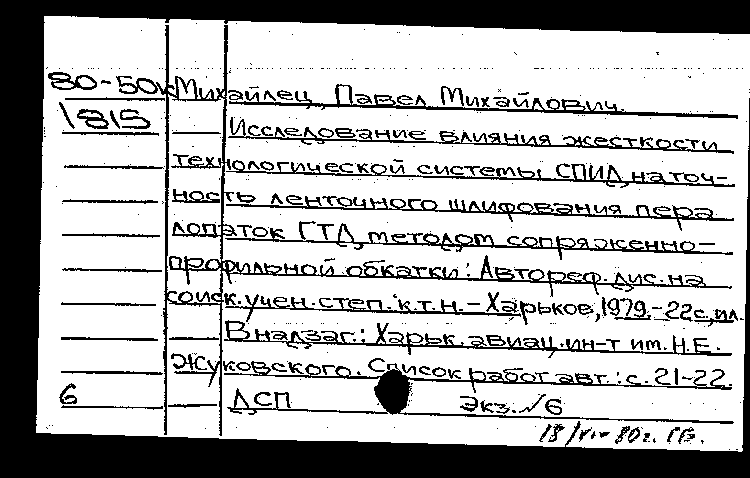 80-50к Михайлец, Павел Михайлович.
1815 Исследование влияния жесткости
технологической системы СПИД на точ-
ность ленточного шлифования пера
лопаток ГТД методом сопряженно-
профильной обкатки: Автореф. дис. на
соиск. учен. степ. к.т.н. - Харьков, 1979. - 22с., ил.
В надзаг.: Харьк. авиац. ин-т им. Н.Е.
Жуковского. Список работ авт.: с. 21-22.
6 ДСП Экз. № 6
18/VII-80г.